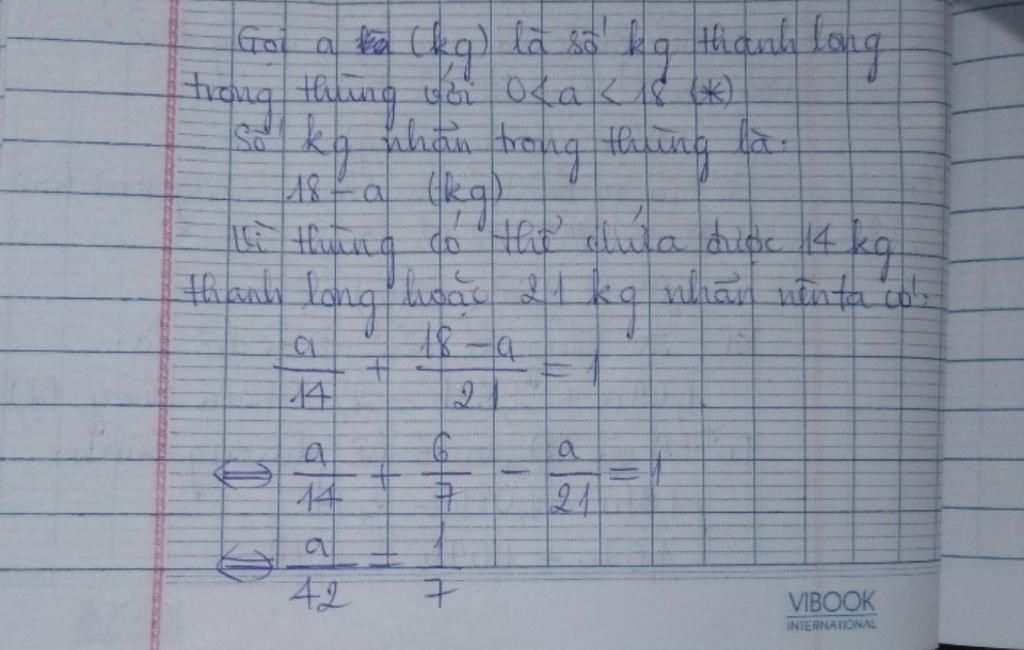 Gọi a (kg) là số kg thanh long
trong thùng với 0 < a < 18 (*)
Số kg nhãn trong thùng là:
18 - a (kg)
Vì thùng có thể chứa được 14 kg
thanh long hoặc 21 kg nhãn nên ta có:
a/14 + (18 - a)/21 = 1
⇔ a/14 + 6/7 - a/21 = 1
⇔ a/42 = 1/7
VIBOOK
INTERNATIONAL